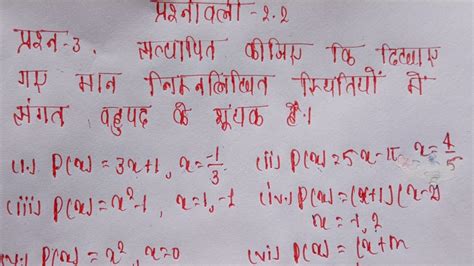 प्रश्नावली - 2.2
प्रश्न-3. सत्यापित कीजिए कि दिखाए
गए मान निम्नलिखित स्थितियों में
संगत बहुपद के शून्यक हैं।
(i) P(x) = 3x+1, x = -1/3 (ii) P(x) = 5x-π, x = 4/5
(iii) P(x) = x²-1, x = 1, -1 (iv) P(x) = (x+1) (x-2)
x = -1, 2
(v) P(x) = x², x = 0 (vi) P(x) = lx+m